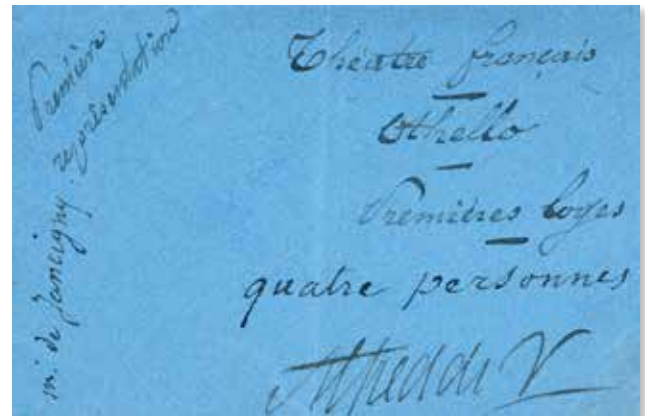 Première
représentation
m. de Jancigny.
Théâtre français
Othello
Premières loges
quatre personnes
Alfred de V